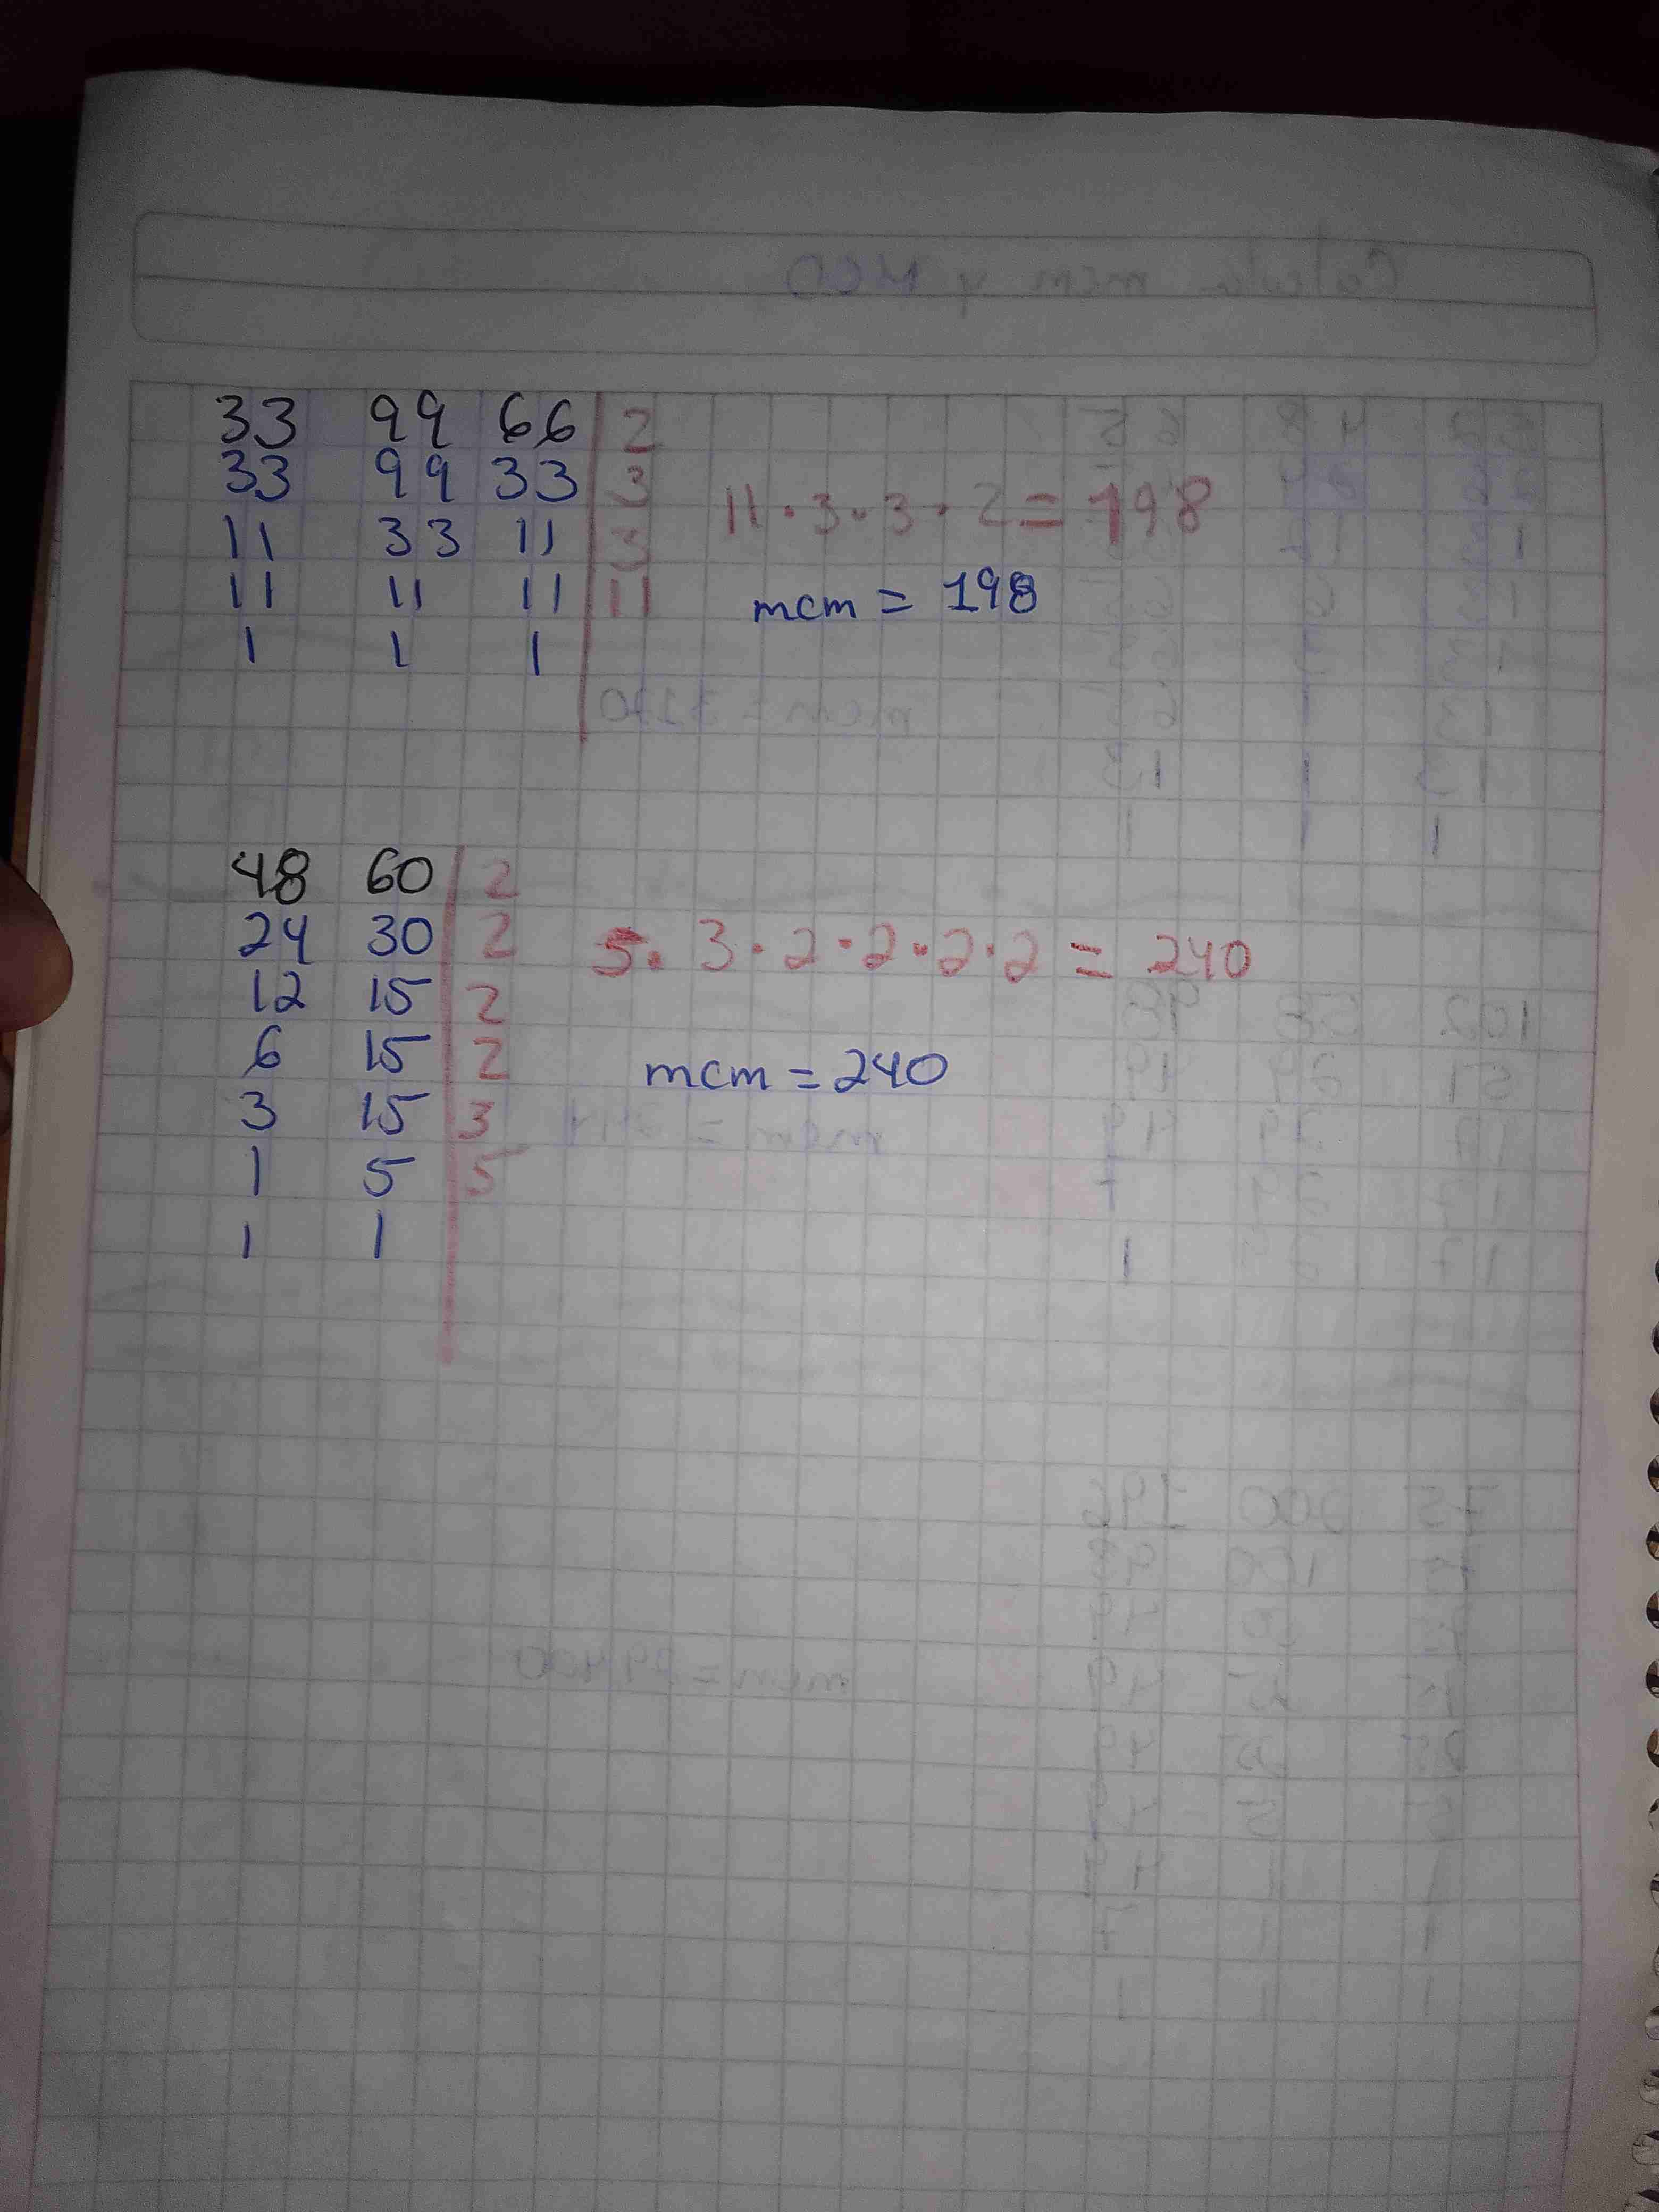 33 99 66 | 2
33 99 33 | 3
11 33 11 | 3
11 11 11 | 11
1 1 1
11 · 3 · 3 · 2 = 198
mcm = 198
48 60 | 2
24 30 | 2
12 15 | 2
6 15 | 2
3 15 | 3
1 5 | 5
1 1
5 · 3 · 2 · 2 · 2 · 2 = 240
mcm = 240